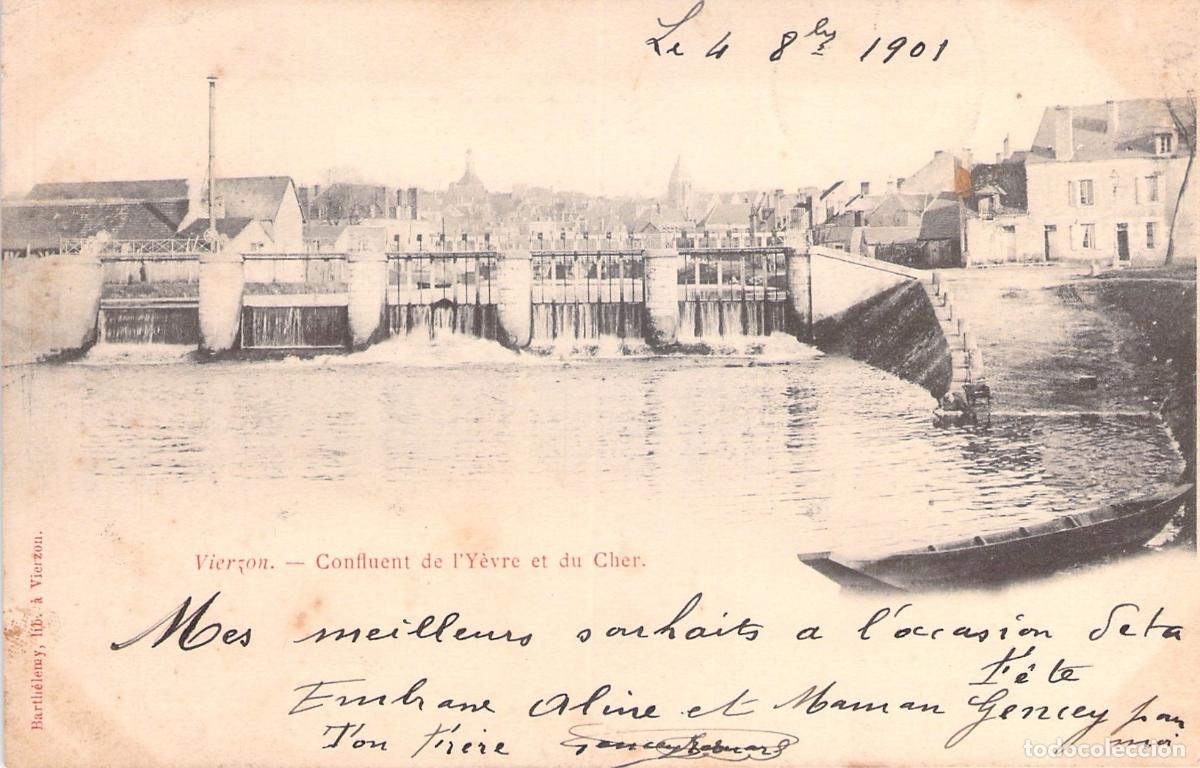 Le 4 8bre 1901
Vierzon. — Confluent de l'Yèvre et du Cher.
Barthélemy, lib. à Vierzon.
Mes meilleurs souhaits a l'occasion de ta
Fête
Embrase Aline et Maman Gencey par
moi
Ton Frère Gencey
todocolección